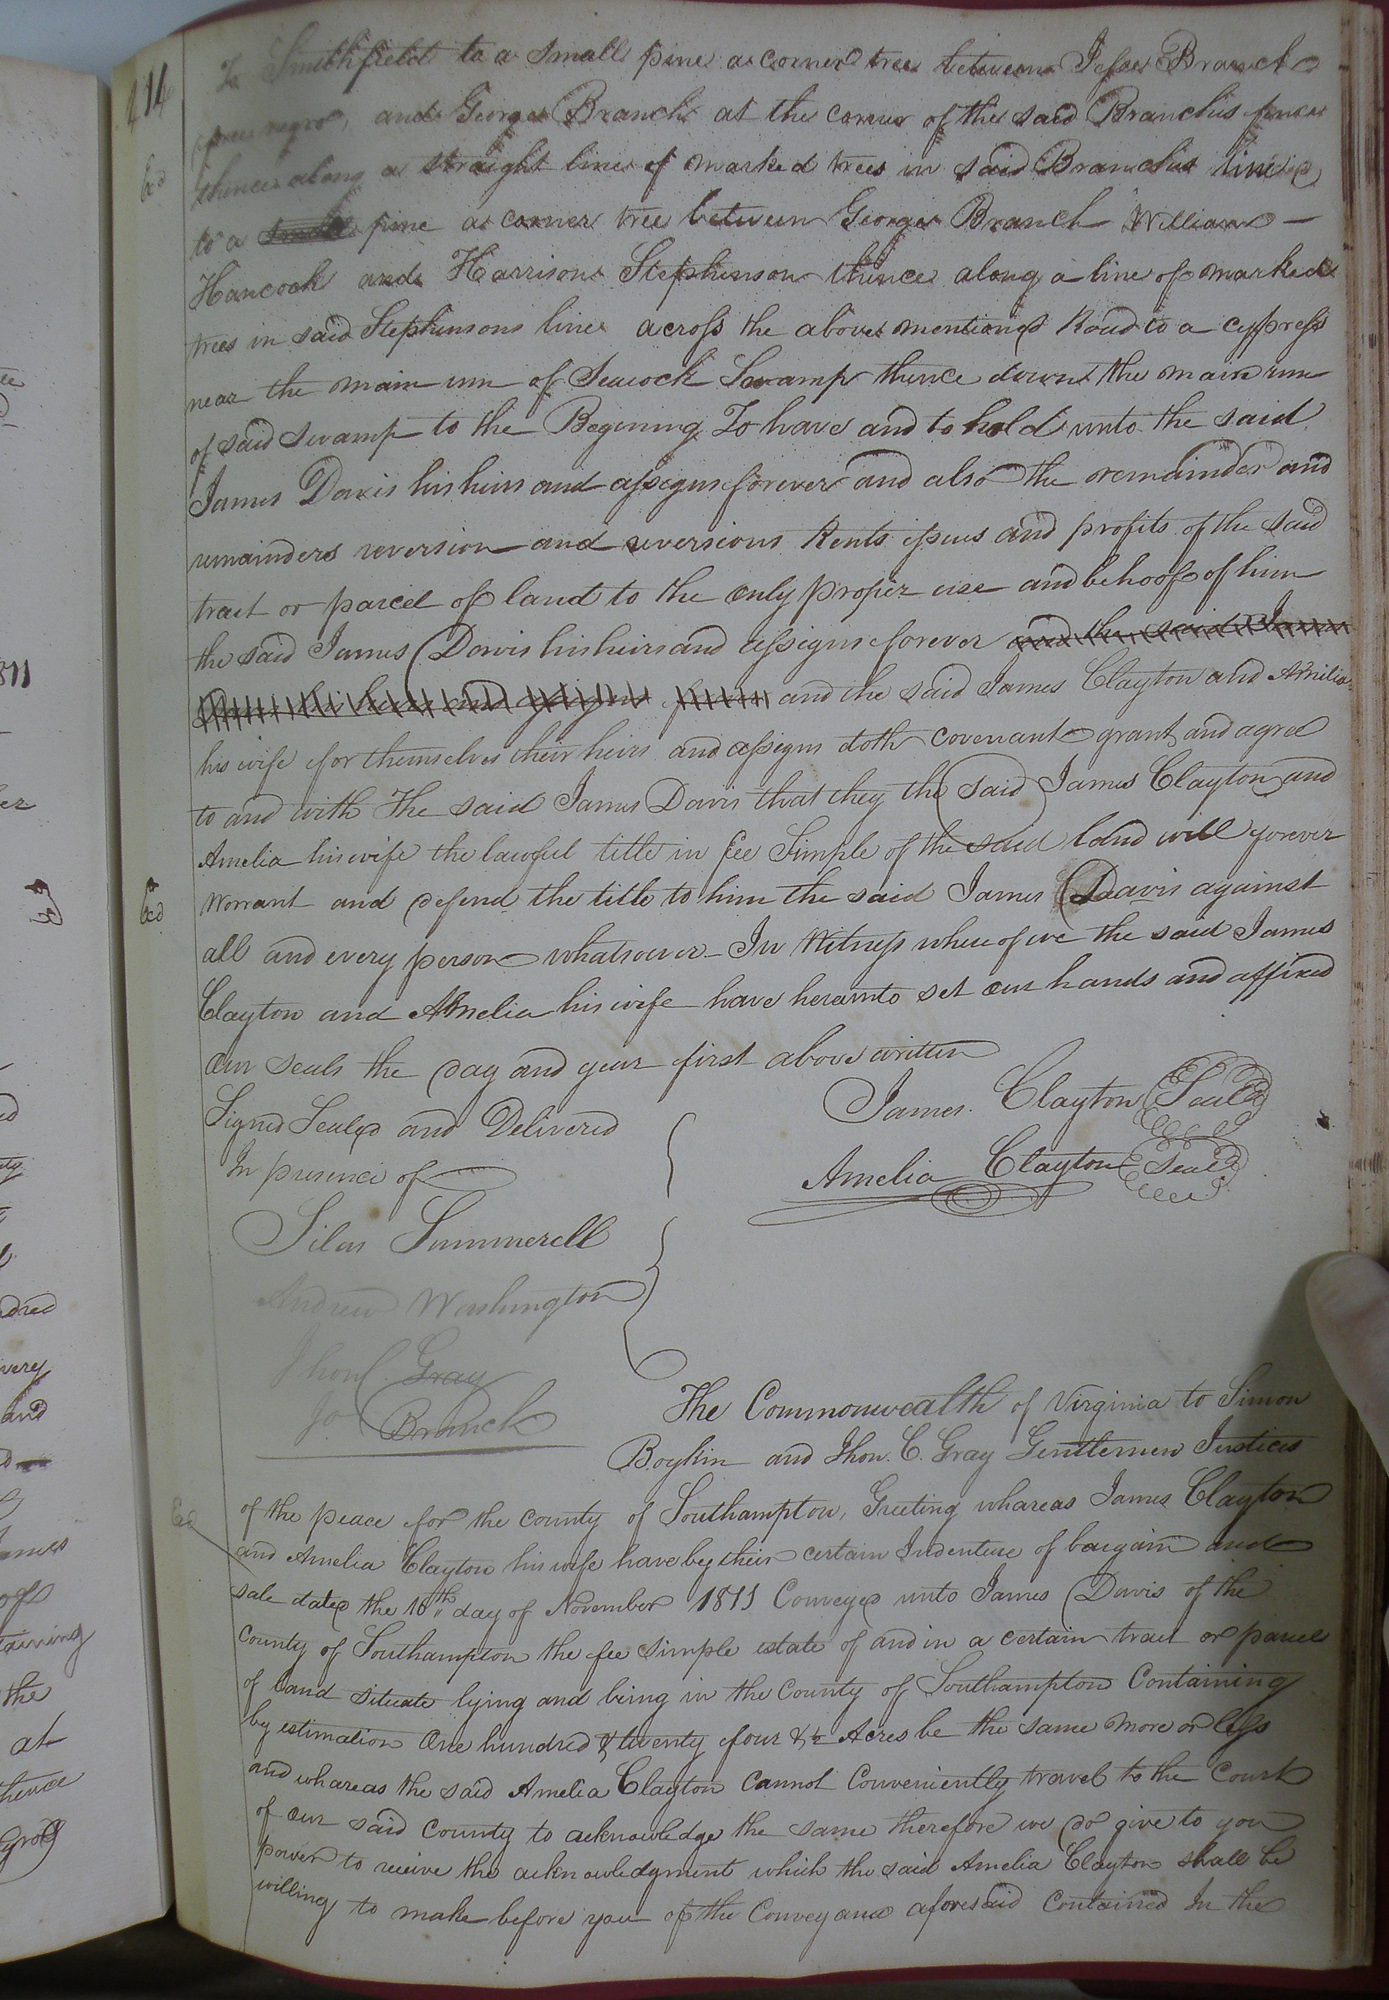 414
To Smithfield to a small pine a corner tree between Jesse Branch
free negro, and George Branch at the corner of the said Branch's fence
thence along a straight line of marked trees in said Branch's line
to a small pine a corner tree between George Branch William
Hancock and Harrison Stephenson thence along a line of marked
trees in said Stephensons line across the above mentiond Road to a cypress
near the main run of Seacock Swamp thence down the main run
of said swamp to the Begining To have and to hold unto the said
James Davis his heirs and assigns forever and also the remainder and
remainders reversion and reversions Rents issues and profits of the said
tract or parcel of land to the only proper use and behoof of him
the said James Davis his heirs and assigns forever and the said James
and the said James Clayton and Amilia
his wife for themselves their heirs and assigns doth covenant grant and agree
to and with The said James Davis that they the said James Clayton and
Amelia his wife the lawful title in fee Simple of the said land will forever
Warrant and defend the title to him the said James Davis against
all and every person whatsoever In Witness whereof we the said James
Clayton and Amelia his wife have hereunto set our hands and affixed
our seals the day and year first above written
Signed Sealed and Delivered
In presence of
James Clayton Seal
Amelia Clayton Seal
Silas Summerell
Andrew Washington
Jhon C Gray
Jo Branch
The Commonwealth of Virginia to Simon
Boykin and Jhon. C. Gray Gentlemen Justices
of the peace for the county of Southampton, Greeting whareas James Clayton
and Amelia Clayton his wife have by their certain Indenture of bargain and
sale dated the 16th day of November 1811 Conveyed unto James Davis of the
County of Southampton the fee simple estate of and in a certain tract or parcel
of land situate lying and being in the County of Southampton Containing
by estimation One hundred & twenty four & ½ Acres be the same more or less
and whareas the said Amelia Clayton cannot Conveniently travel to the Court
of our said County to acknowledge the same therefore we do give to you
power to receive the acknowledgment which the said Amelia Clayton shall be
willing to make before you of the Conveyance aforesaid Contained In the